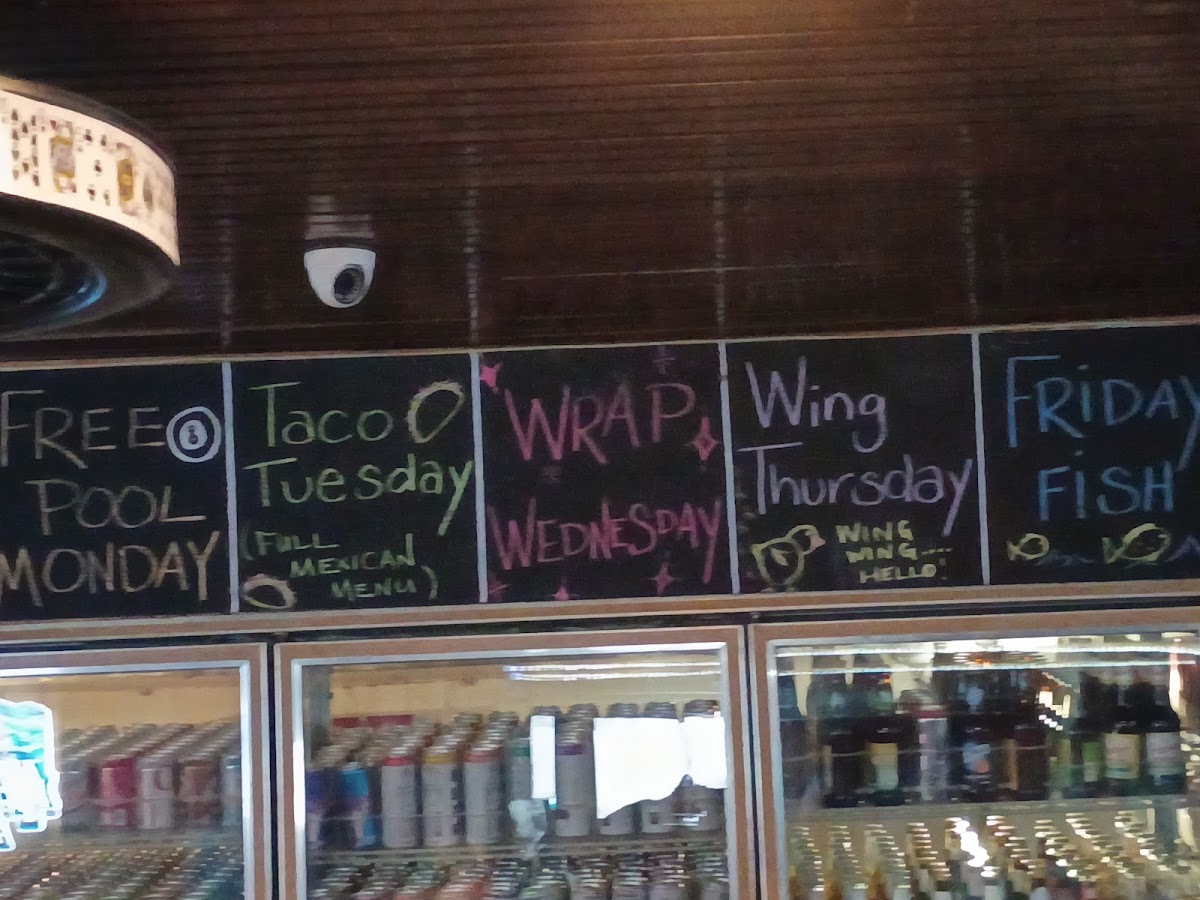 FREE
POOL
MONDAY
Taco
Tuesday
(FULL
MEXICAN
MENU)
WRAP
WEDNESDAY
Wing
Thursday
WING
WING....
HELLO!
FRIDAY
FISH